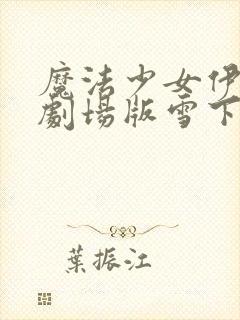 魔法少女伊
劇場版雪下
葉振江